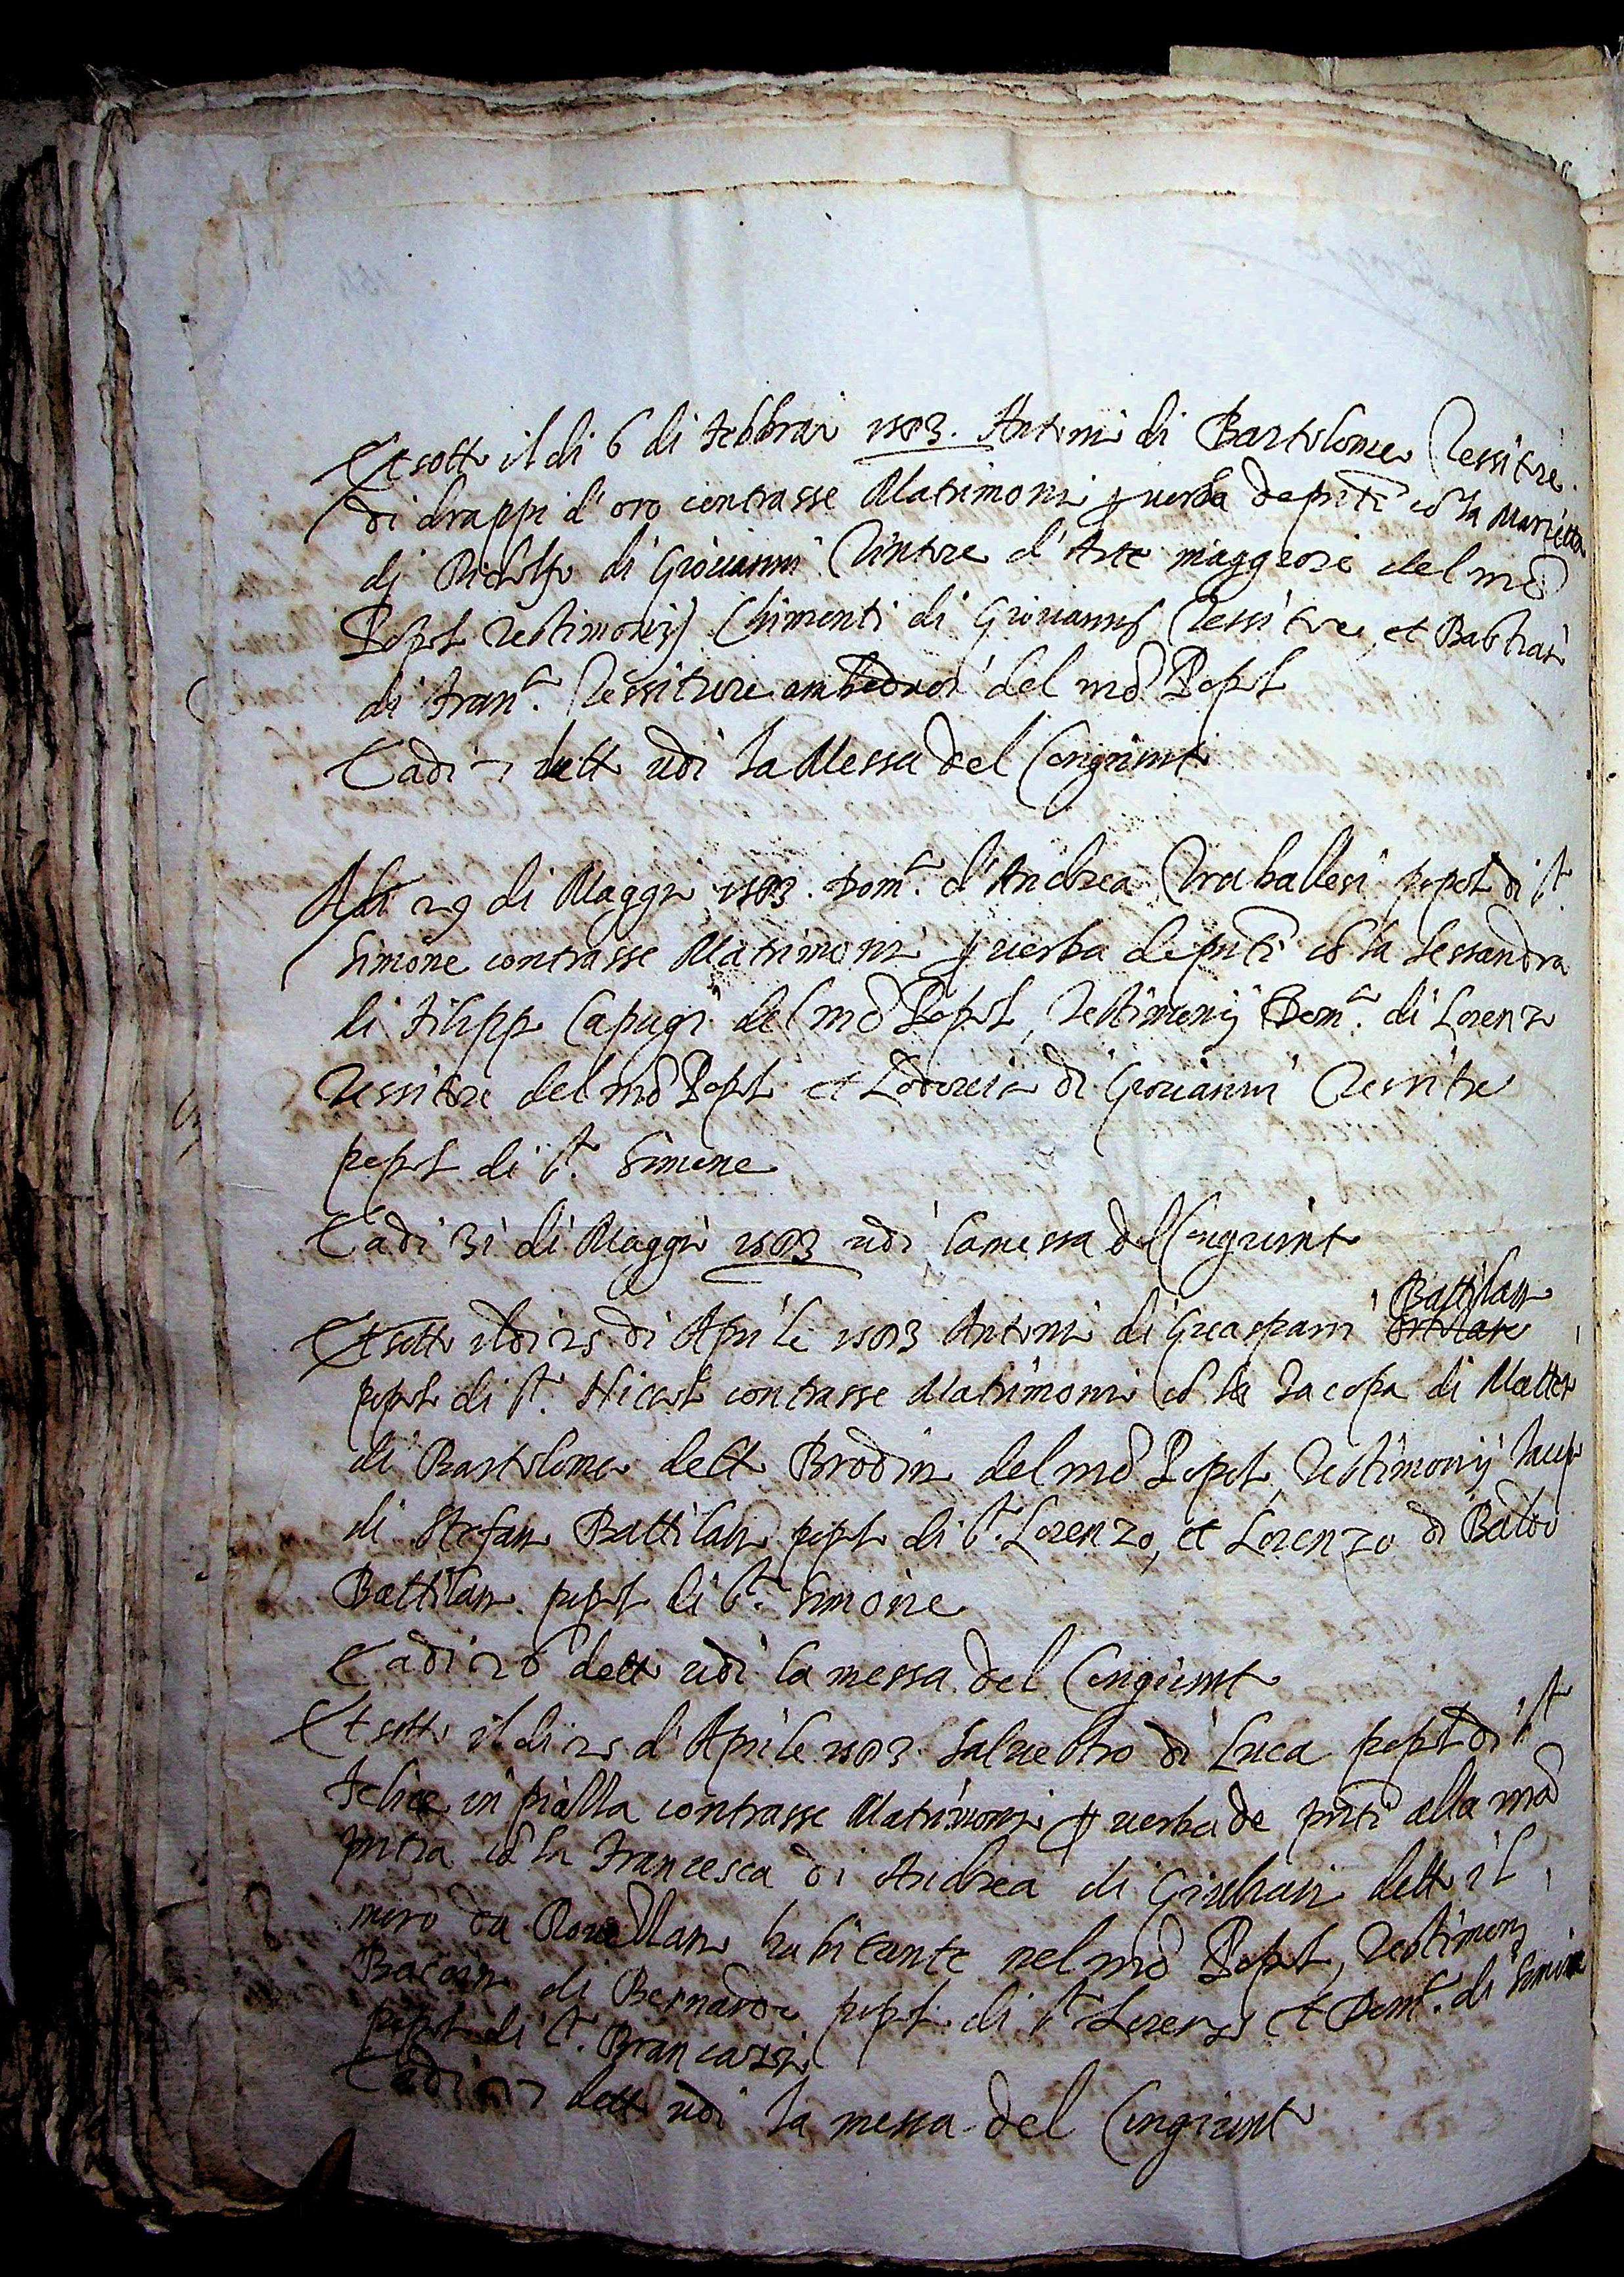 Et sotto il di 6 di Febbraio 1583. Antonio di Bartolomeo Tessitore
di drappi d'oro contrasse Matrimonio p verba de pnti cō la Marietta
di Ridolfo di Giovanni Tintore d'Arte maggiore del mō
Popolo Testimonij Chimenti di Giovanni Tessitore, et Bastiano
di Franᶜᵒ. Tessitore ambedue del mō Popolo
E adi 7 detto udi la Messa del Congiunto
Adi 29 di Maggio 1583. Domᶜᵒ. d'Andrea Traballesi popolo di Sᵗᵒ
Simone contrasse Matrimonio p verba de pnti cō la Lessandra
di Filippo Capugi del mō Popolo, Testimonij Domᶜᵒ. di Lorenzo
Tessitore del mō Popolo et Lodovico di Giovanni Tessitore
popolo di Sᵗᵒ. Simone
E adi 31 di Maggio 1583 udi la messa del Congiunto
Et sotto il di 25 di Aprile 1583 Antonio di Guasparri Battilano
popolo di Sᵗᵒ. Niccolo contrasse Matrimonio cō la Jacopa di Matteo
di Bartolomeo detto Brodino del mō Popolo, Testimonij Jacopo
di Stefano Battilano popolo di Sᵗᵒ. Lorenzo, et Lorenzo di Baldo
Battilano popolo di Sᵗᵒ. Simone
E adi 26 detto udi la messa del Congiunto
Et sotto il di 25 d'Aprile 1583. Salvestro di Luca popolo di Sᵗᵒ
Felice in piazza contrasse Matrimonio p verba de pnti alla mā
pntia cō la Francesca di Andrea di Giuliano detto il
moro da Rovezzano habitante nel mō Popolo, Testimonij
di Bernardo popolo di Sᵗᵒ Lorenzo et Domᶜᵒ. di Simone
popolo di Sᵗᵒ. Brancazio
E adi 27 detto udi la messa del Congiunto